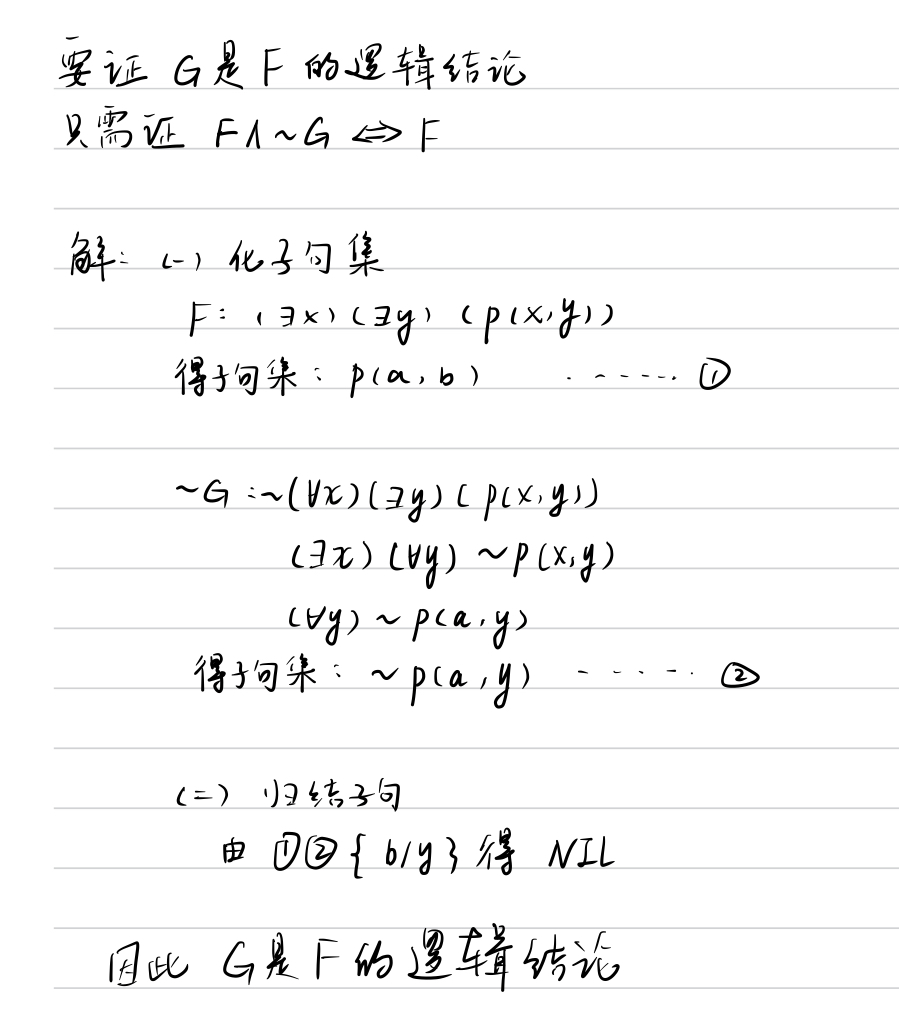 要证 G是F的逻辑结论
只需证 F∧~G ⇔ F
解: (一) 化子句集
F: (∃x)(∃y)(p(x,y))
得子句集: p(a,b) ...... ①
~G:~(∀x)(∃y)(p(x,y))
(∃x)(∀y)~p(x,y)
(∀y)~p(a,y)
得子句集: ~p(a,y) ...... ②
(二) 归结子句
由 ①②{b/y}得 NIL
因此 G是F的逻辑结论